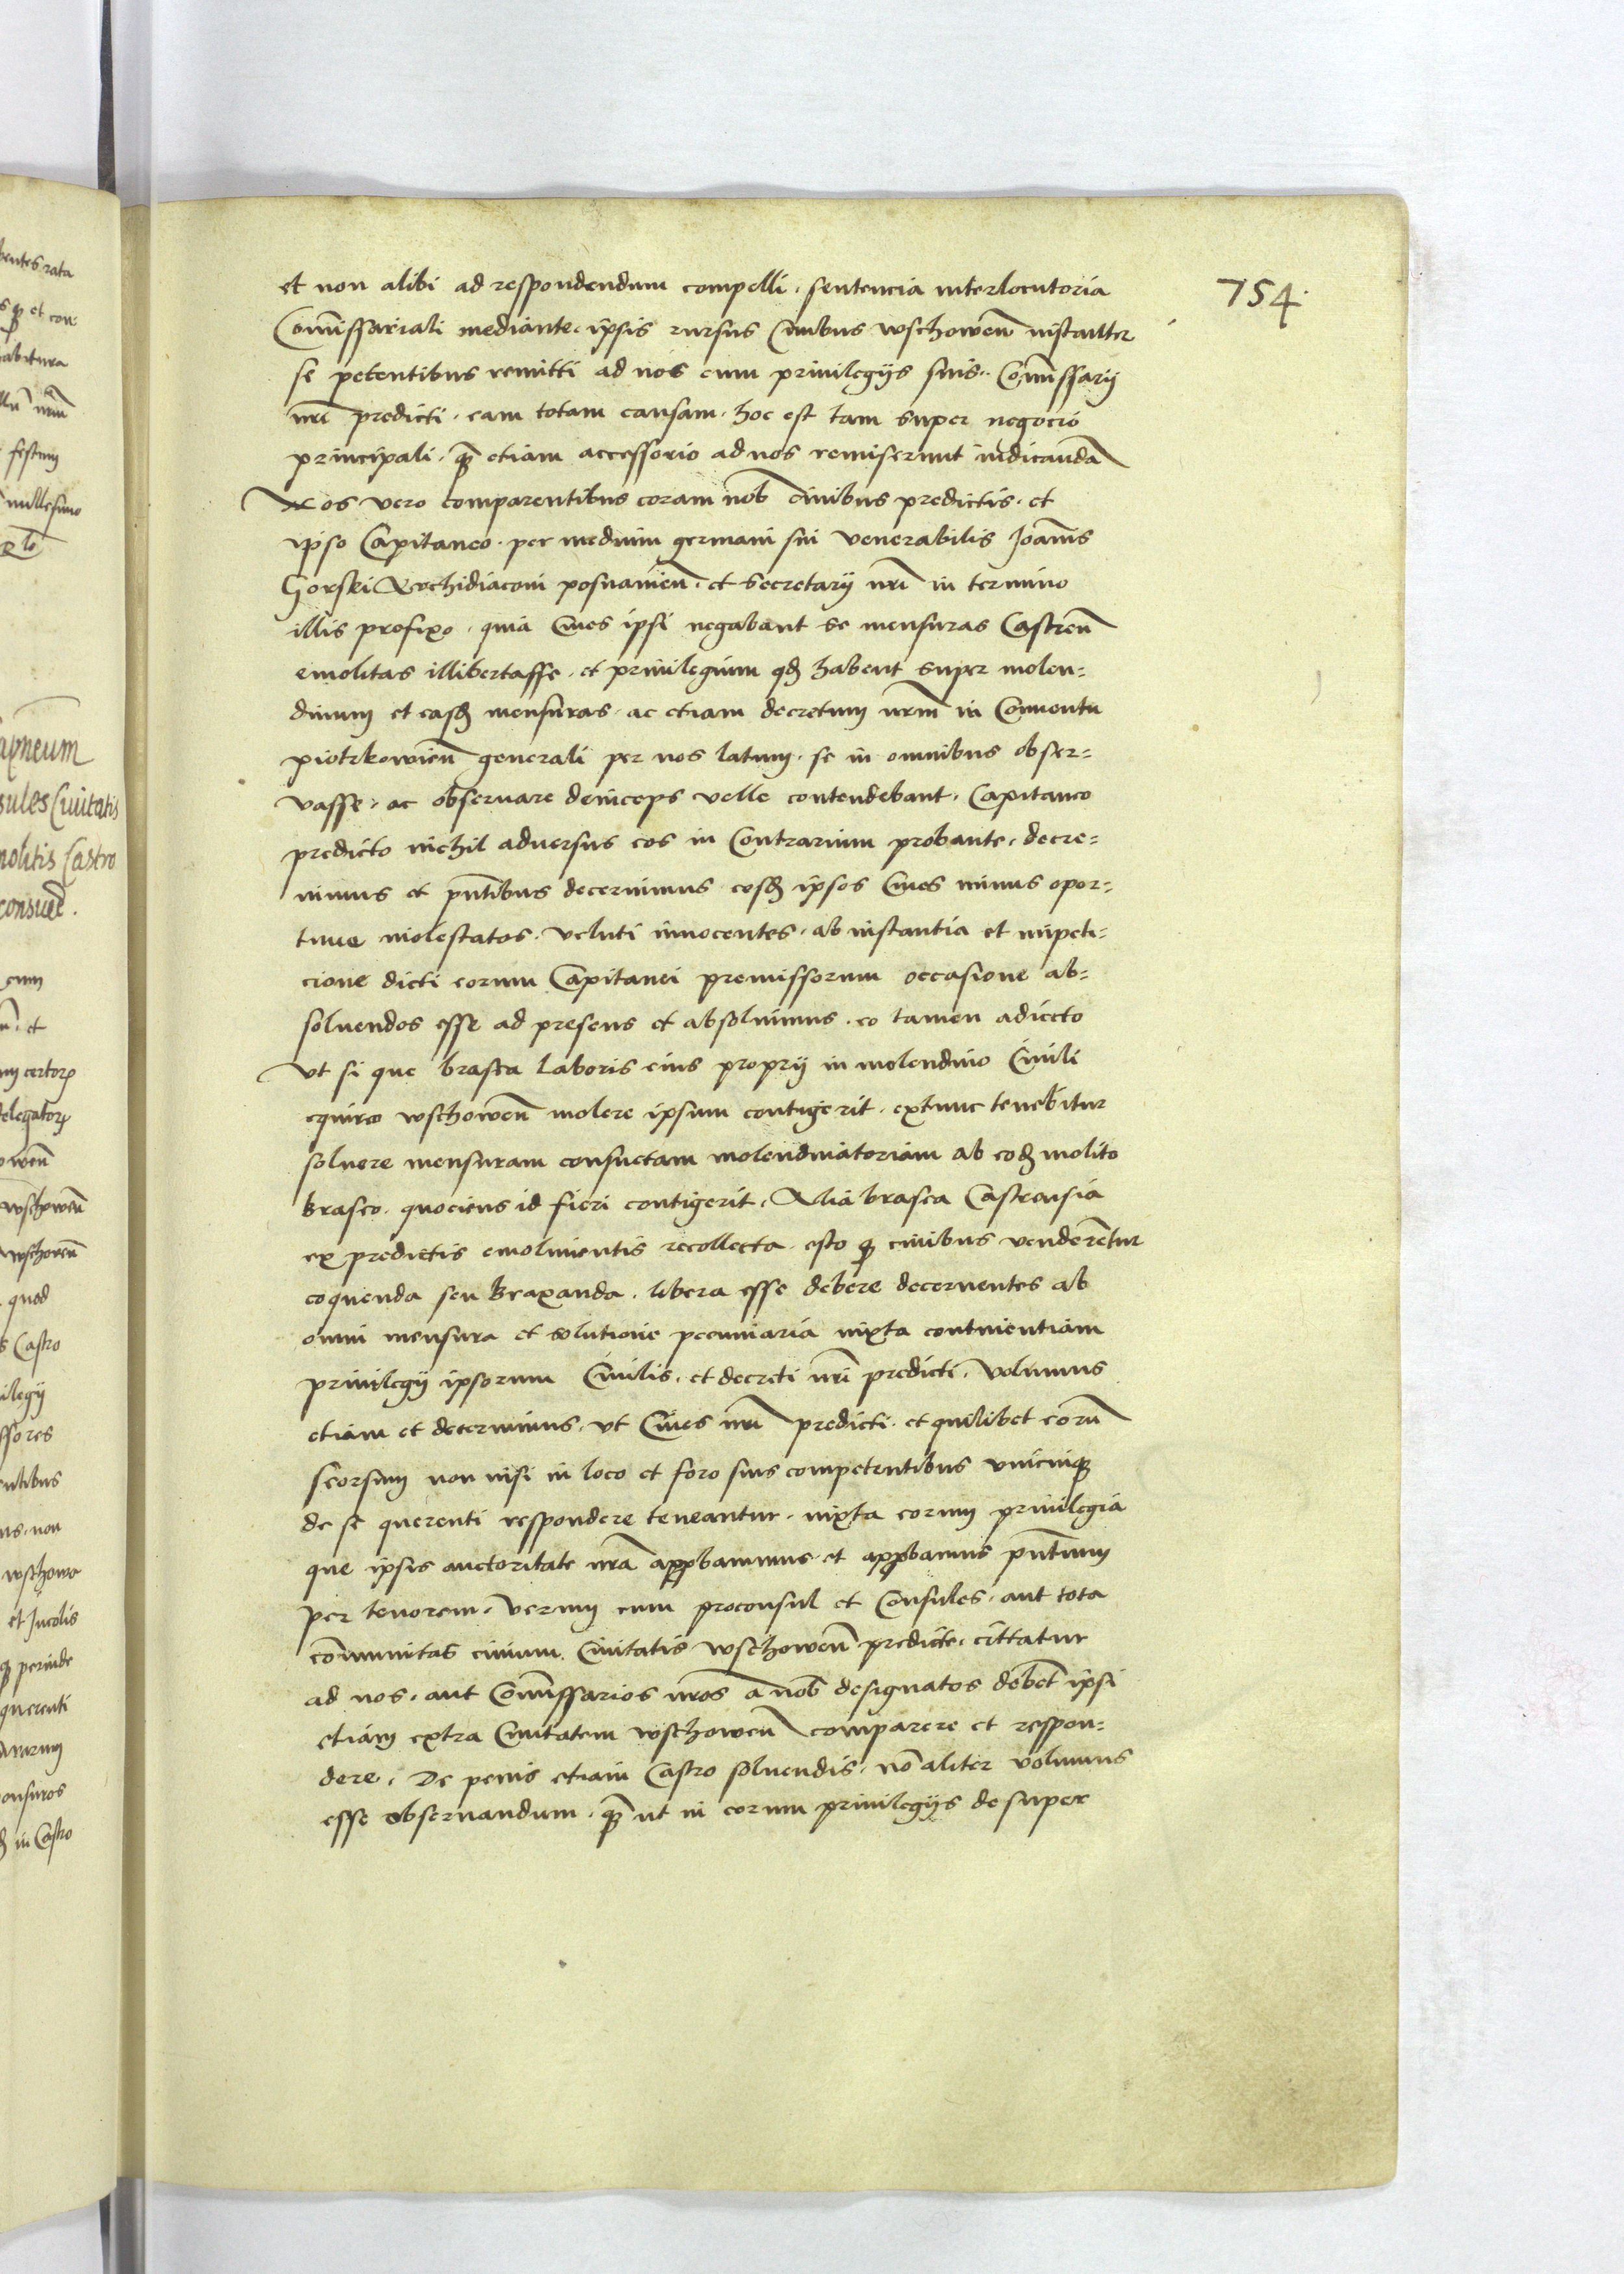 754
et non alibi ad respondendum compelli, sentencia interlocutoria
Com̄issariali mediante, ipsis rursus Ciuibus wschowen̄ instanter
se petentibus remitti ad nos cum priuilegijs suis, Com̄issarij
nr̄i predicti, eam totam causam, hoc est tam super negocio
principali, qȝ̄ etiam accessorio ad nos remiserunt iudicandā
Nos vero comparentibus coram nob̄ ciuibus predictis, et
ipso Capitaneo, per medium germani sui venerabilis Joānis
Gorski Archidiaconi posnanien̄, et Secretarij nr̄i in termino
illis prefixo, quia Ciues ipsi negabant se mensuras Castren̄
emolitas illibertasse, et priuilegium qđ habent super molen=
dinum et easđ mensuras, ac etiam decretum nr̄m in Conuentu
piotrkowien̄ generali per nos latum, se in omnibus obser=
vasse, ac obseruare deinceps velle contendebant, Capitaneo
predicto nichil aduersus eos in Contrarium probante, decre=
uimus et pn̄tibus decernimus eosđ ipsos Ciues minus opor=
tune molestatos, veluti innocentes, ab instantia et impeti=
cione dicti eorum Capitanei premissorum occasione ab=
soluendos esse ad presens et absoluimus, eo tamen adiecto
vt si que brasea laboris eius proprij in molendino Ciuili
equireo wschowen̄ molere ipsum contigerit, extunc tenebitur
soluere mensuram consuetam molendinatoriam ab eođ molito
Braseo, quociens id fieri contigerit, Alia brasea Castrensia
ex predictis emolimentis recollecta, esto qȝ ciuibus venderētur
coquenda seu Braxanda, libera esse debere decernentes ab
omni mensura et solutione pecuniaria iuxta continentiam
priuilegij ipsorum Ciuilis, et decreti nr̄i predicti, Volumus
etiam et decernimus, vt Ciues nr̄i predicti, et quilibet eorū
seorsum non nisi in loco et foro suis competentibus vnicuiqȝ
de se querenti respondere teneantur, iuxta eorum priuilegia
que ipsis auctoritate nr̄a appꝓbauimus, et appꝓbamus pn̄tium
per tenorem, Verum cum proconsul et Consules, aut tota
cōmunitas ciuium Ciuitatis wschowen̄ predicte, cittatur
ad nos, aut Com̄issarios nr̄os a nob̄ designatos debet ipsi
etiam extra Ciuitatem wschowen̄ comparere et respon=
dere, De penis etiam Castro soluendis, nō aliter volumus
esse obseruandum, qȝ̄ ut in eorum priuilegijs desuper